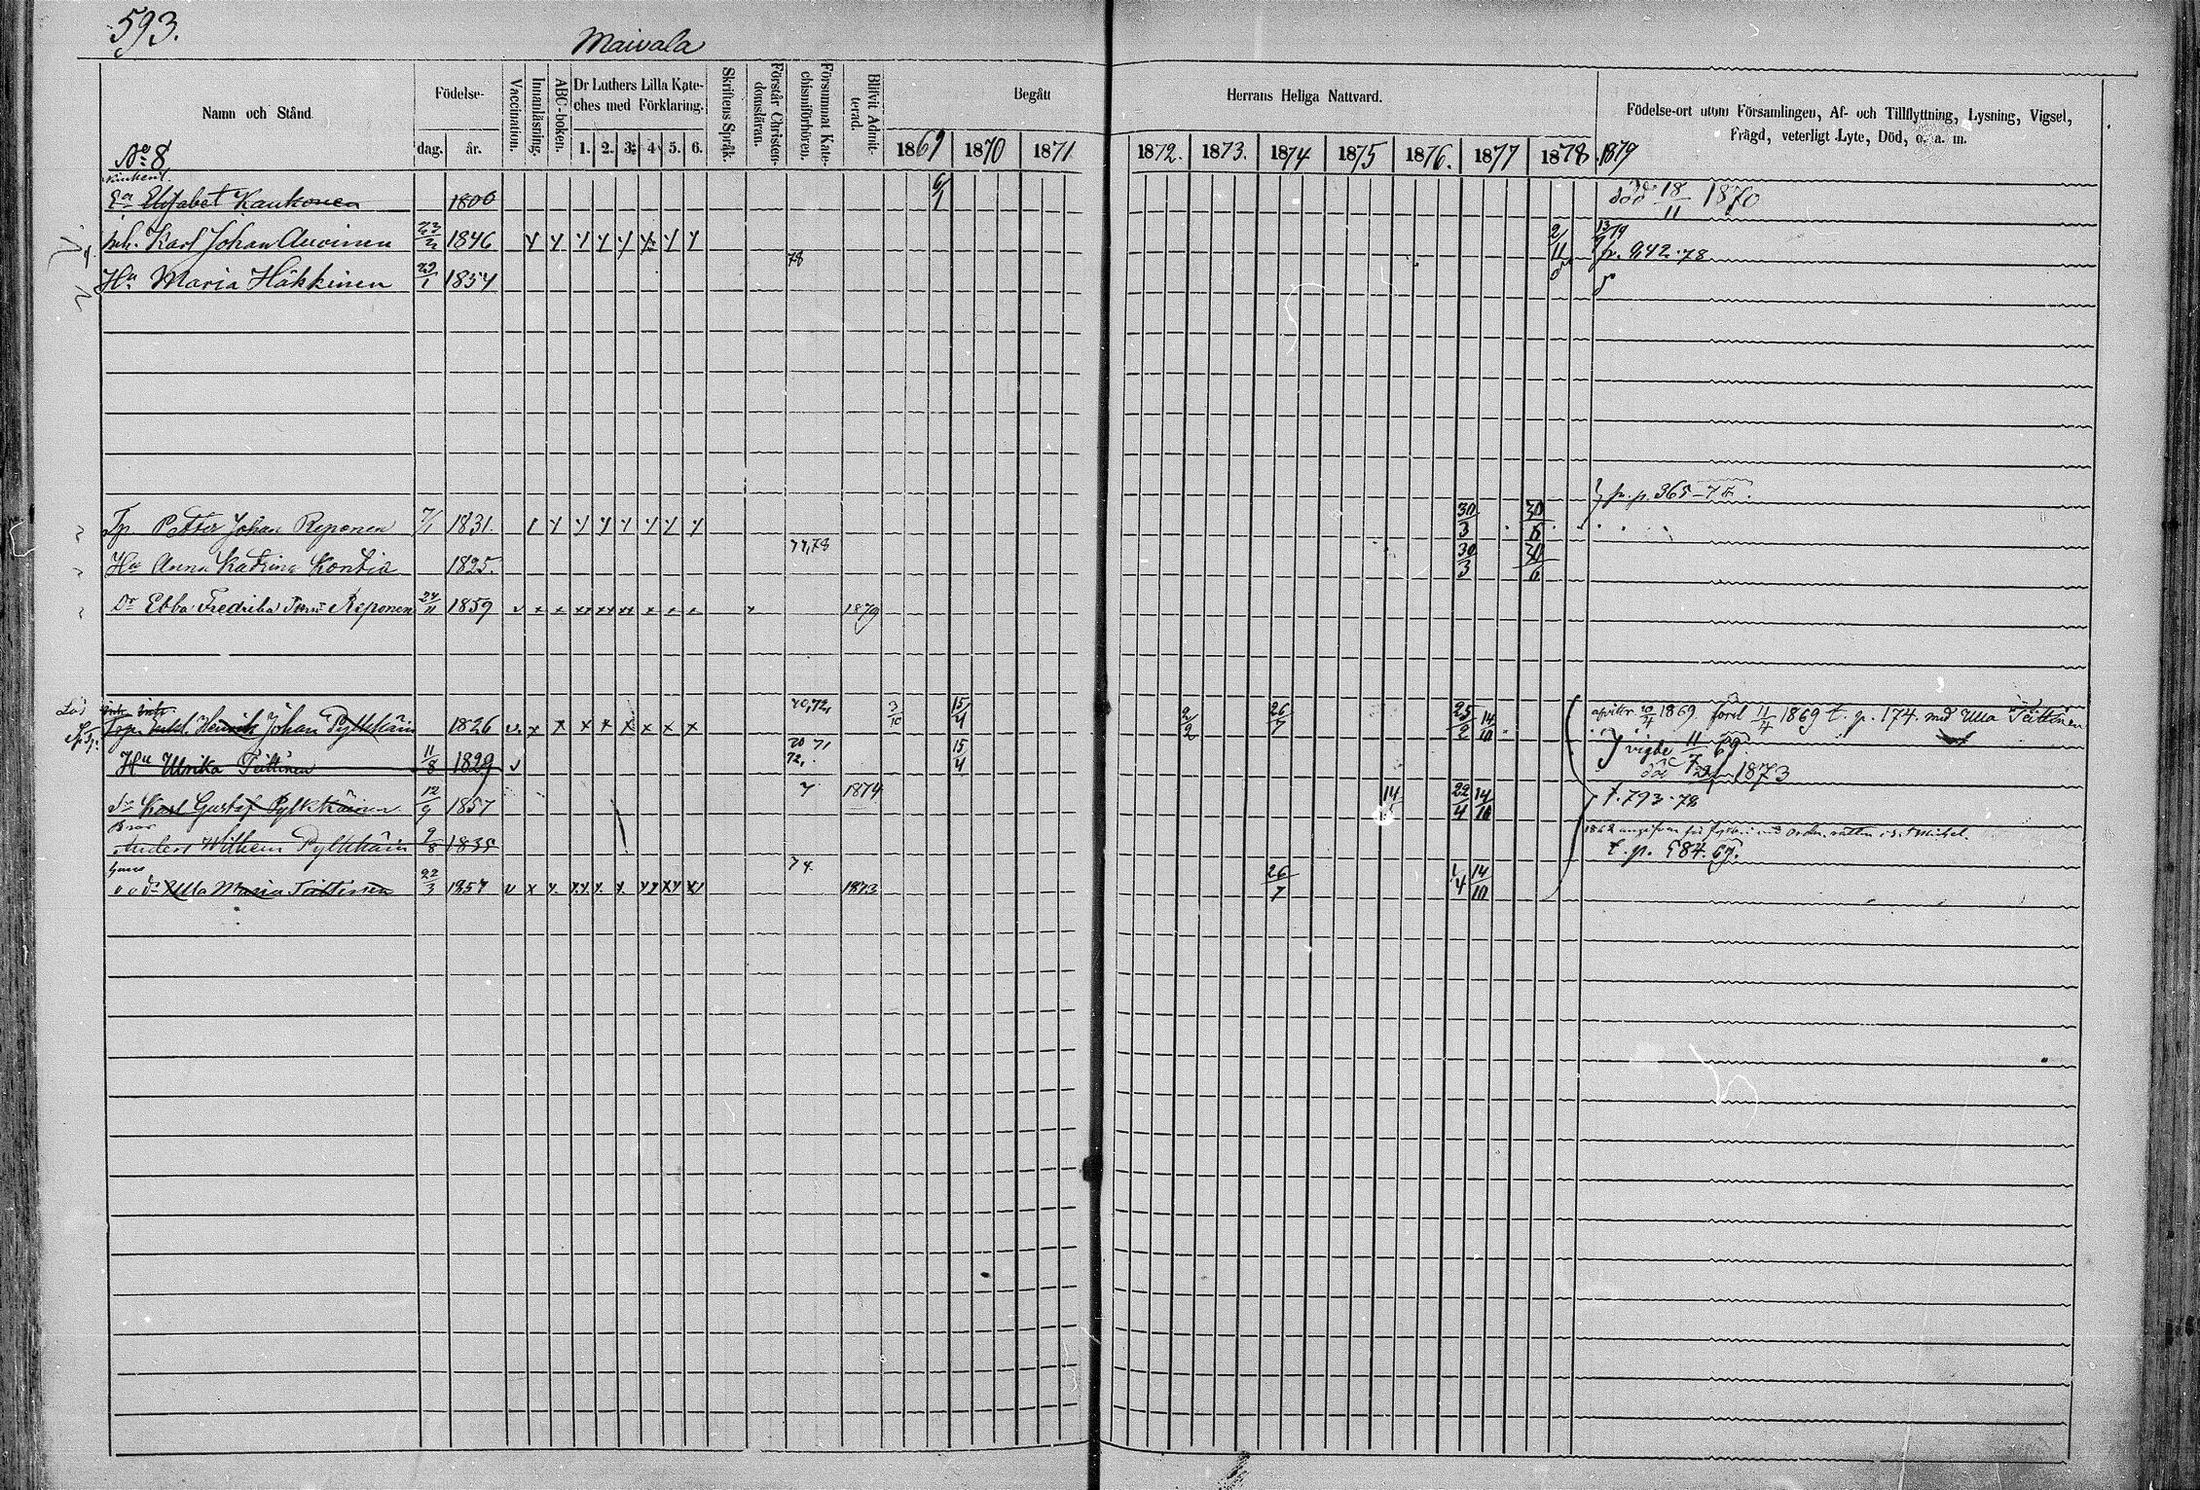 593.
Maivala
Namn och Stånd.
Födelse-
dag.
år.
Vaccination.
Innanläsning.
ABC-boken.
Dr Luthers Lilla Kate-
ches med Förklaring.
1. 2. 3. 4. 5. 6.
Skriftens Språk.
Förstår Christen-
domsläran.
Försummat Kate-
chismiförhören.
Blifvit Admit-
terad.
Begått
Herrans Heliga Nattvard.
1869 1870 1871 1872. 1873. 1874 1875 1876. 1877 1878 1879
Födelse-ort utom Församlingen, Af- och Tillflyttning, Lysning, Vigsel,
Frägd, veterligt Lyte, Död, o. a. m.
No 8
Ea Elisabet Kaukonen 1800 6/1 död 18/11 1870
Karl Johan Auvinen 1846 2/11 13/9
fr. 942.78
78
Hu Maria Häkkinen 29/1 1854
fr. p. 365-78.
Petter Johan Reponen 7/1 1831. 30/3 30/6
77,78
Hu Anna Katrina Kontia 1825. 30/3 30/6
Dr Ebba Fredrika Reponen 24/11 1859 1879
70,72,
Henrik Johan Pylkkäin 1826 3/10 15/4 2/2 26/7 25/2 14/10 1869 11/4 1869 t. p. 174. med Ulla Teittinen
70 71
72,
Hu Ulrika Teittinen 11/8 1829 15/4 vigde 11/7 69
död 1873
Sn Karl Gustaf Pylkkänen 12/9 1857 1874 14 22/4 14/10 t. 793.78
Bror
Anders Wilhelm Pylkkäin 9/8 1835
t. p. 584.69.
74
Ulla Maria Teittinen 22/3 1857 1873 26/7 1/4 14/10